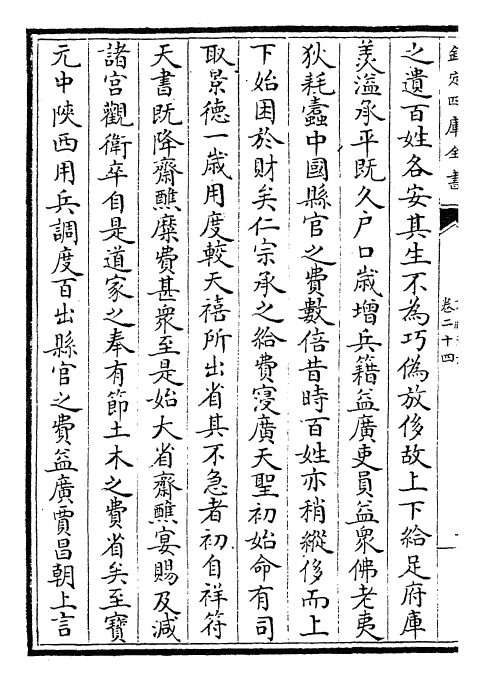 欽定四庫全書
卷二十四
之遺百姓各安其生不為巧偽放侈故上下給足府庫
羨溢承平既久户口嵗增兵籍益廣吏員益衆佛老夷
狄耗蠧中國縣官之費數倍昔時百姓亦稍縱侈而上
下始困於財矣仁宗承之給費寖廣天聖初始命有司
取景德一嵗用度較天禧所出省其不急者初自祥符
天書既降齋醮糜費甚衆至是始大省齋醮宴賜及減
諸宫觀衛卒自是道家之奉有節土木之費省矣至寶
元中陜西用兵調度百出縣官之費益廣賈昌朝上言